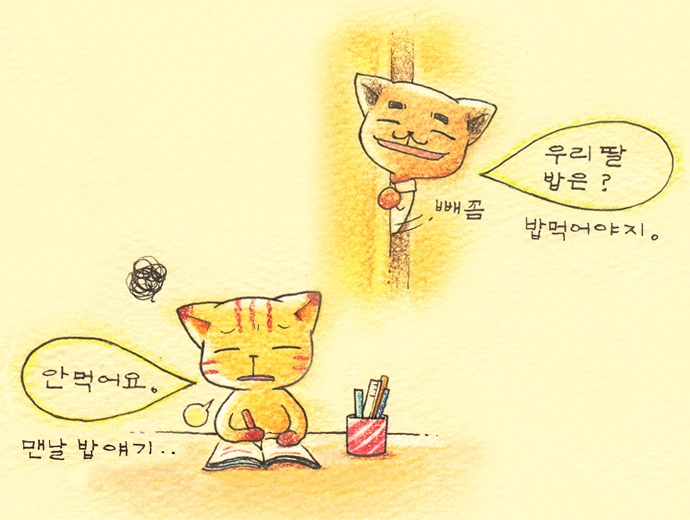 우리 딸
밥은?
빼꼼
밥먹어야지。
안먹어요。
맨날 밥얘기..